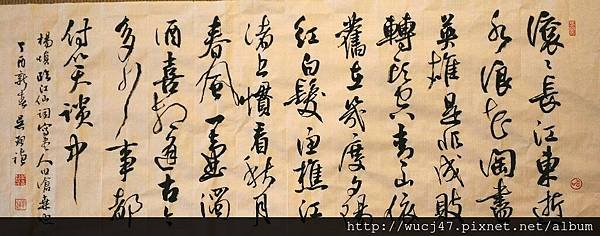 滾滾長江東逝
水浪花淘盡
英雄是非成敗
轉頭空青山依
舊在幾度夕陽
紅白髮漁樵江
渚上慣看秋月
春風一壺濁
酒喜相逢古今
多少事都
付笑談中
楊慎臨江仙詞寫盡人世滄桑
丁酉新春吳
http://wucj47.pixnet.net/album